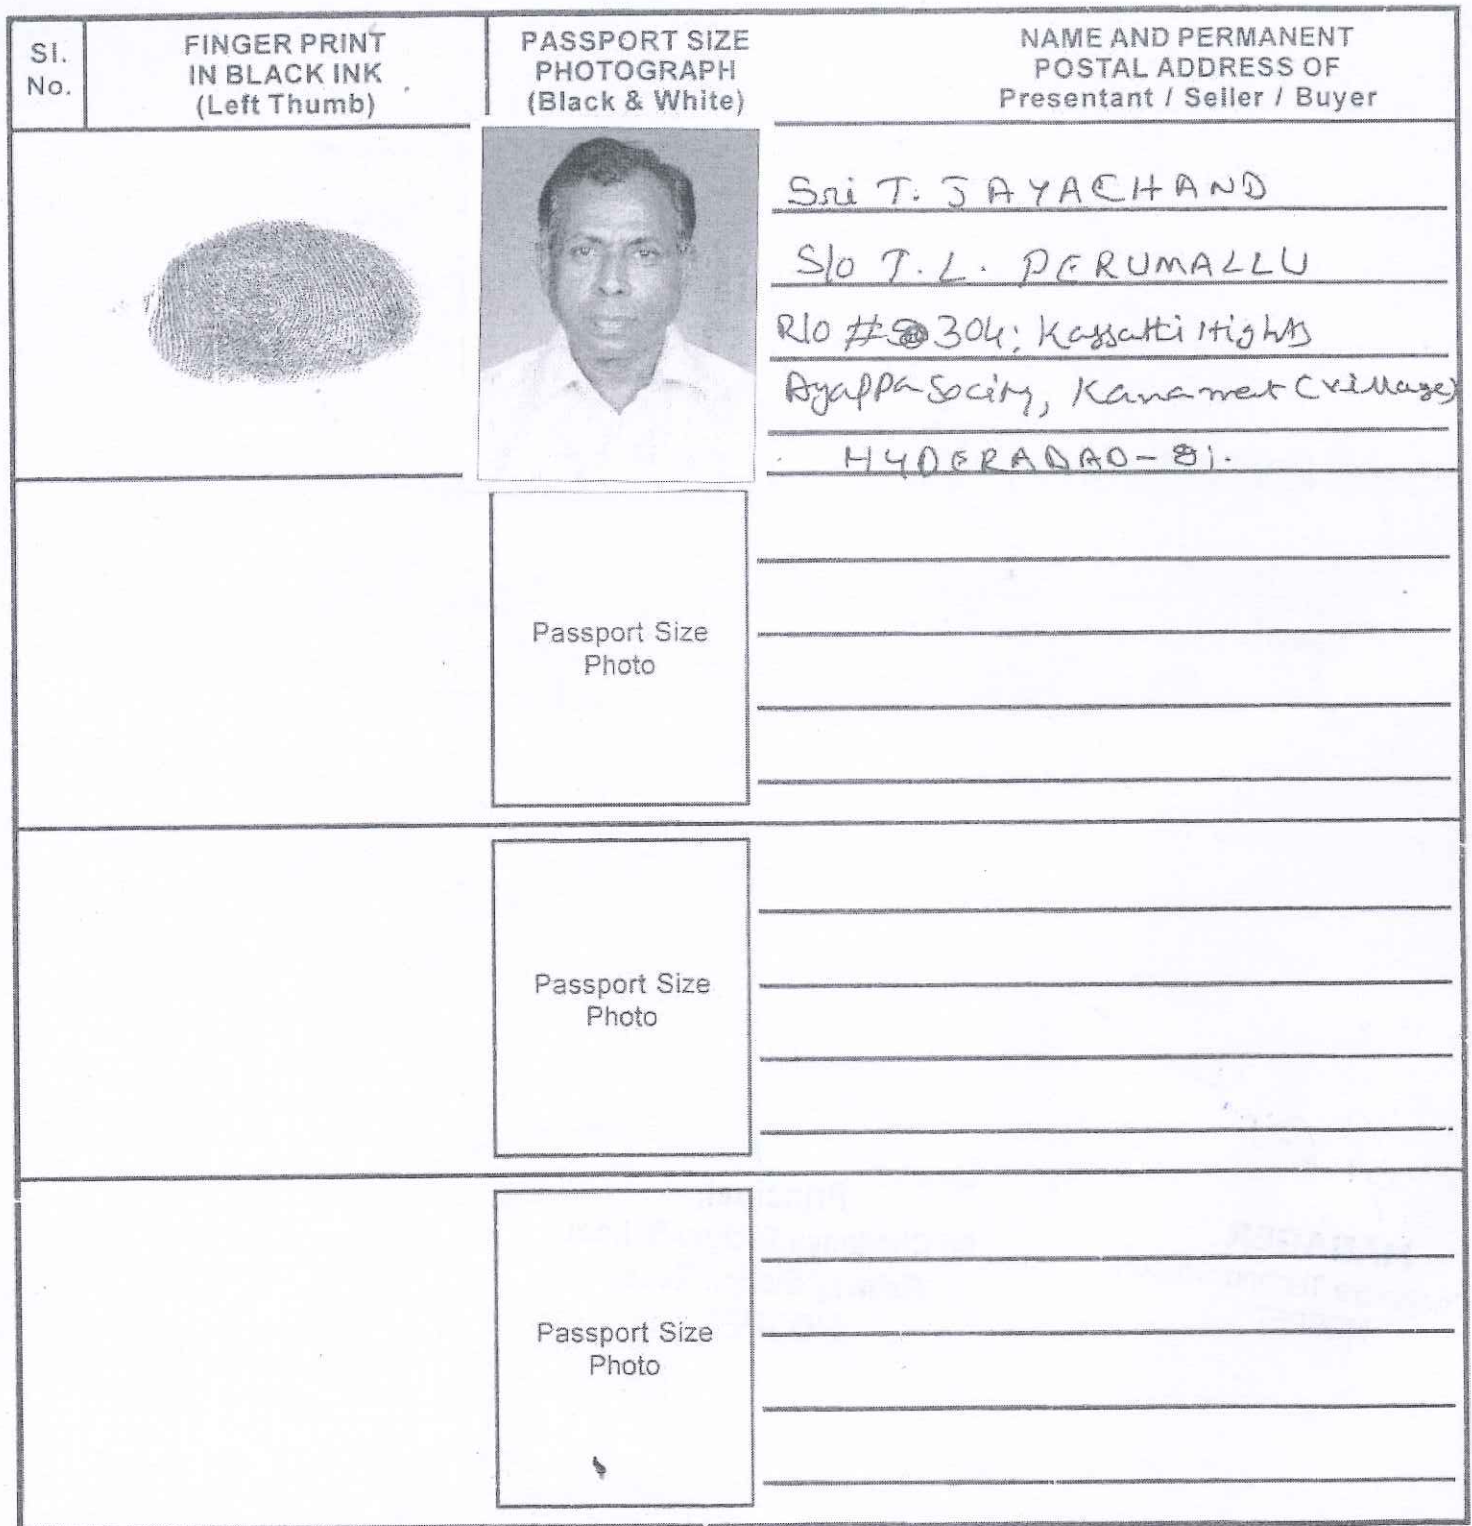 Sl.
No.
FINGER PRINT
IN BLACK INK
(Left Thumb)
PASSPORT SIZE
PHOTOGRAPH
(Black & White)
NAME AND PERMANENT
POSTAL ADDRESS OF
Presentant / Seller / Buyer
Sri T. JAYACHAND
S/o T.L. PERUMALLU
R/o # 304; Kassatti Hights
Ayappa Socity, Kanamet (village)
HYDERABAD-81.
Passport Size
Photo
Passport Size
Photo
Passport Size
Photo